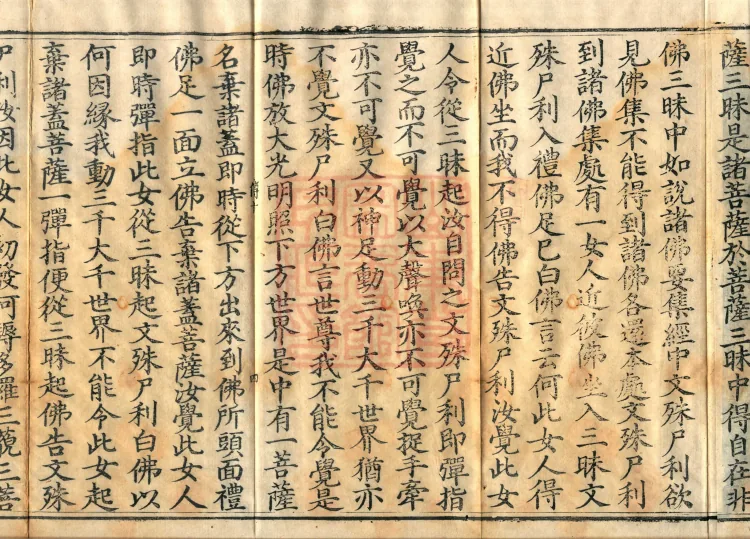 薩三昧是諸菩薩於菩薩三昧中得自在非
佛三昧中如說諸佛要集經中文殊尸利欲
見佛集不能得到諸佛各還本處文殊尸利
到諸佛集處有一女人近彼佛坐入三昧文
殊尸利入禮佛足已白佛言云何此女人得
近佛坐而我不得佛告文殊尸利汝覺此女
人令從三昧起汝自問之文殊尸利即彈指
覺之而不可覺以大聲喚亦不可覺捉手牽
亦不可覺又以神足動三千大千世界猶亦
不覺文殊尸利白佛言世尊我不能令覺是
時佛放大光明照下方世界是中有一菩薩
名棄諸蓋即時從下方出來到佛所頭面禮
佛足一面立佛告棄諸蓋菩薩汝覺此女人
即時彈指此女從三昧起文殊尸利白佛以
何因緣我動三千大千世界不能令此女起
棄諸蓋菩薩一彈指便從三昧起佛告文殊
尸利汝因此女人初發阿耨多羅三藐三菩
四